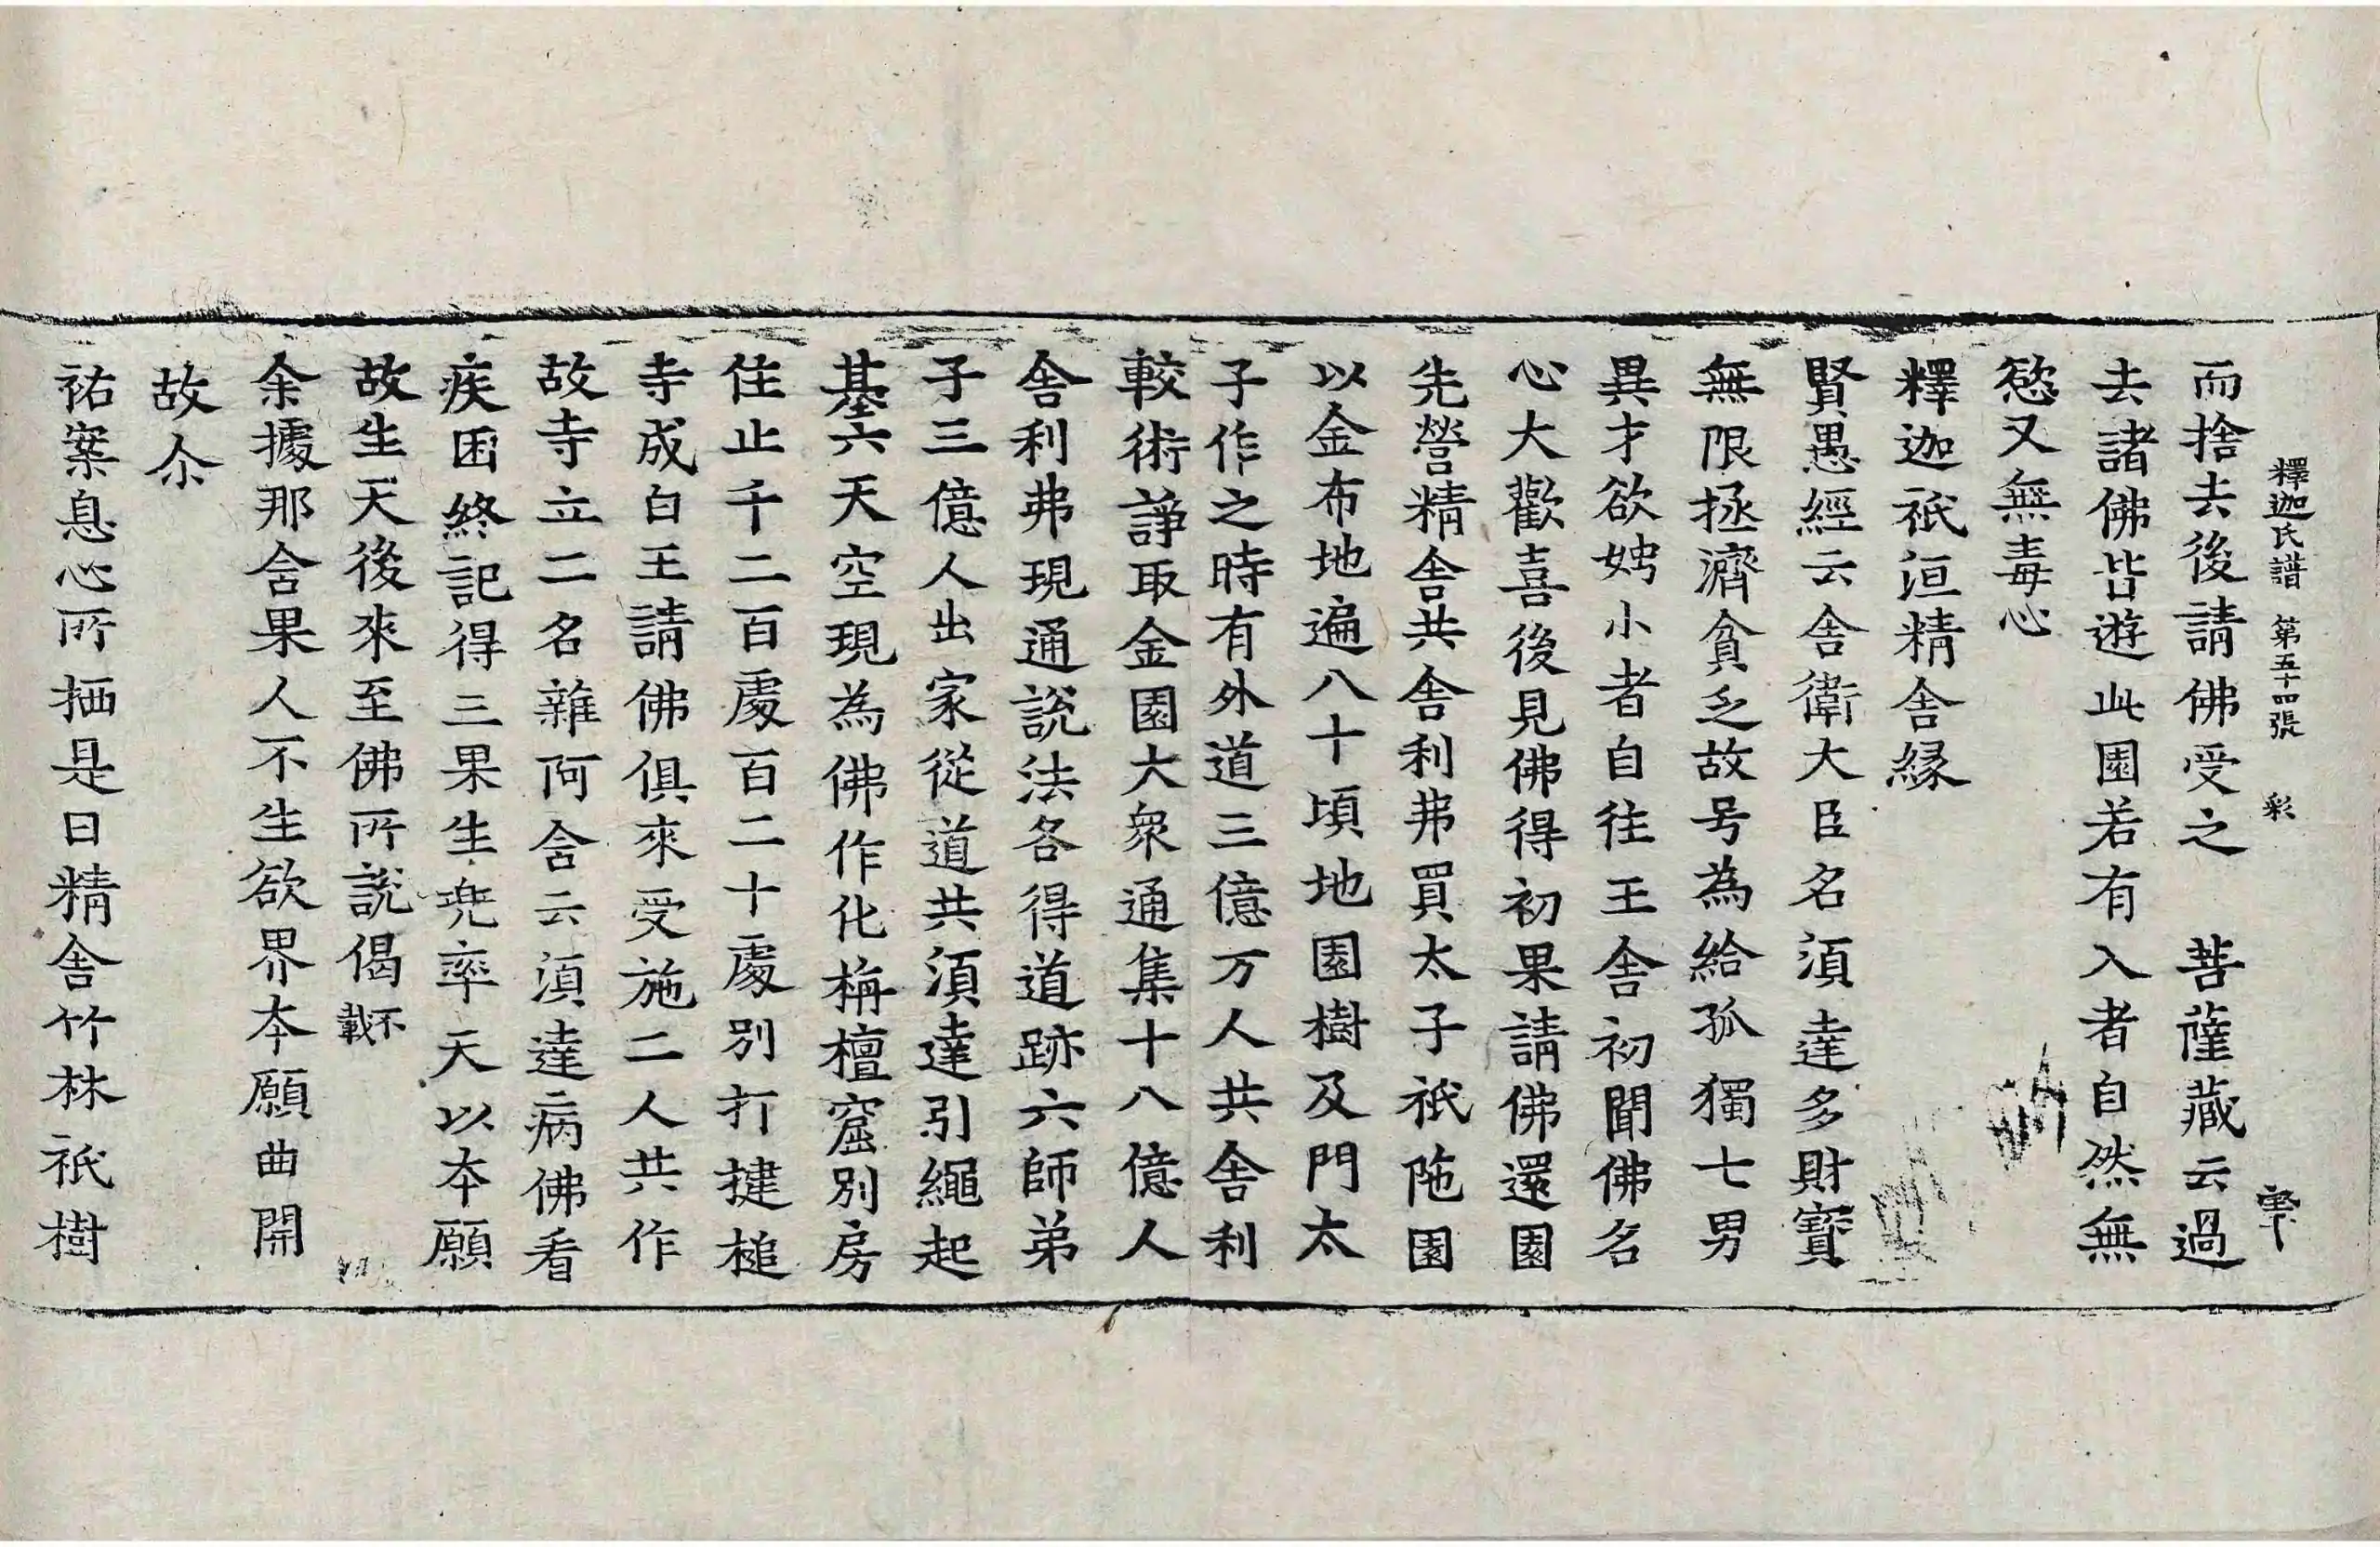 釋迦氏譜 第五十四張 彩
而捨去後請佛受之 菩薩藏云過
去諸佛皆遊此園若有入者自然無
慾又無毒心
釋迦祇洹精舍縁
賢愚經云舍衛大臣名須達多財寶
無限拯濟貧乏故号為給孤獨七男
異才欲娉小者自往王舍初聞佛名
心大歡喜後見佛得初果請佛還園
先營精舍共舍利弗買太子祇陁園
以金布地遍八十頃地園樹及門太
子作之時有外道三億万人共舍利
較術諍取金園大衆通集十八億人
舍利弗現通說法各得道跡六師弟
子三億人出家從道共須達引繩起
基六天空現為佛作化栴檀窟別房
住止千二百處百二十處別打揵槌
寺成白王請佛俱來受施二人共作
故寺立二名雜阿含云須達病佛看
疾困終記得三果生兠率天以本願
故生天後來至佛所說偈不載
余據那含果人不生欲界本願曲開
故尒
祐案息心所栖是曰精舍竹林祇樹